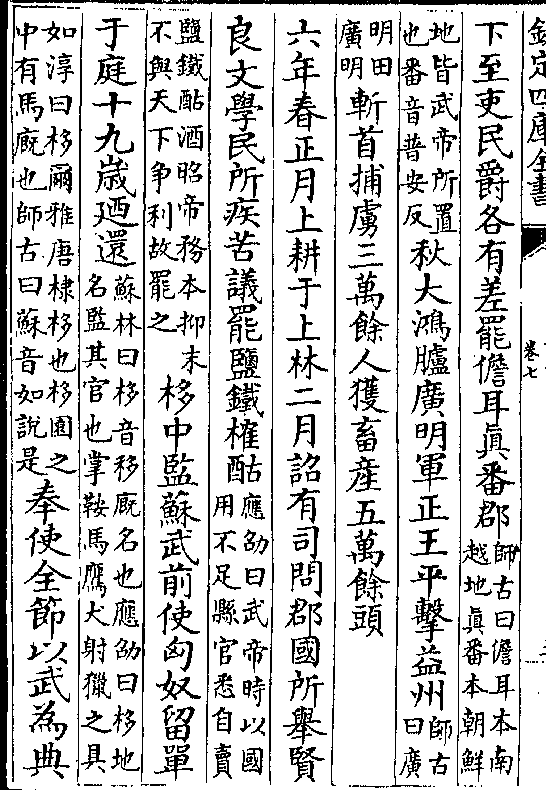 欽定四庫全書
卷七
下至吏民爵各有差罷儋耳眞番郡師古曰儋耳本南越地眞番本朝鮮
地皆武帝所置也番音普安反秋大鴻臚廣明軍正王平擊益州師古曰廣
明田廣明斬首捕虜三萬餘人獲畜産五萬餘頭
六年春正月上耕于上林二月詔有司問郡國所舉賢
良文學民所疾苦議罷鹽鐵榷酤應劭曰武帝時以國用不足縣官悉自賣
鹽鐵酤酒昭帝務本抑末不與天下争利故罷之栘中監蘇武前使匈奴留單
于庭十九歲廼還蘇林曰栘音移廐名也應劭曰栘地名監其官也掌鞍馬鷹犬射獵之具
如淳曰栘爾雅唐棣栘也栘園之中有馬廐也師古曰蘇音如說是奉使全節以武為典